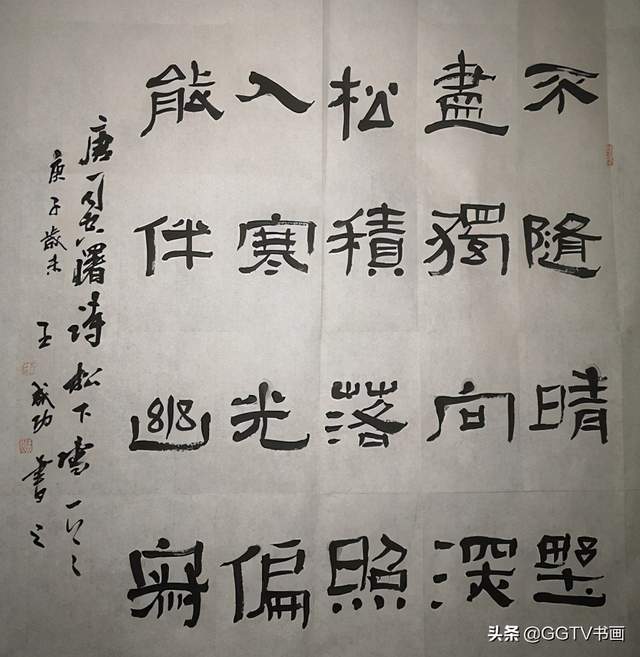 不隨晴墅
盡獨向深
松積落照
入寒光偏
能伴幽寂
唐司空曙詩松下雪一首
庚子歲末 王成功書之
头条 @GGTV书画